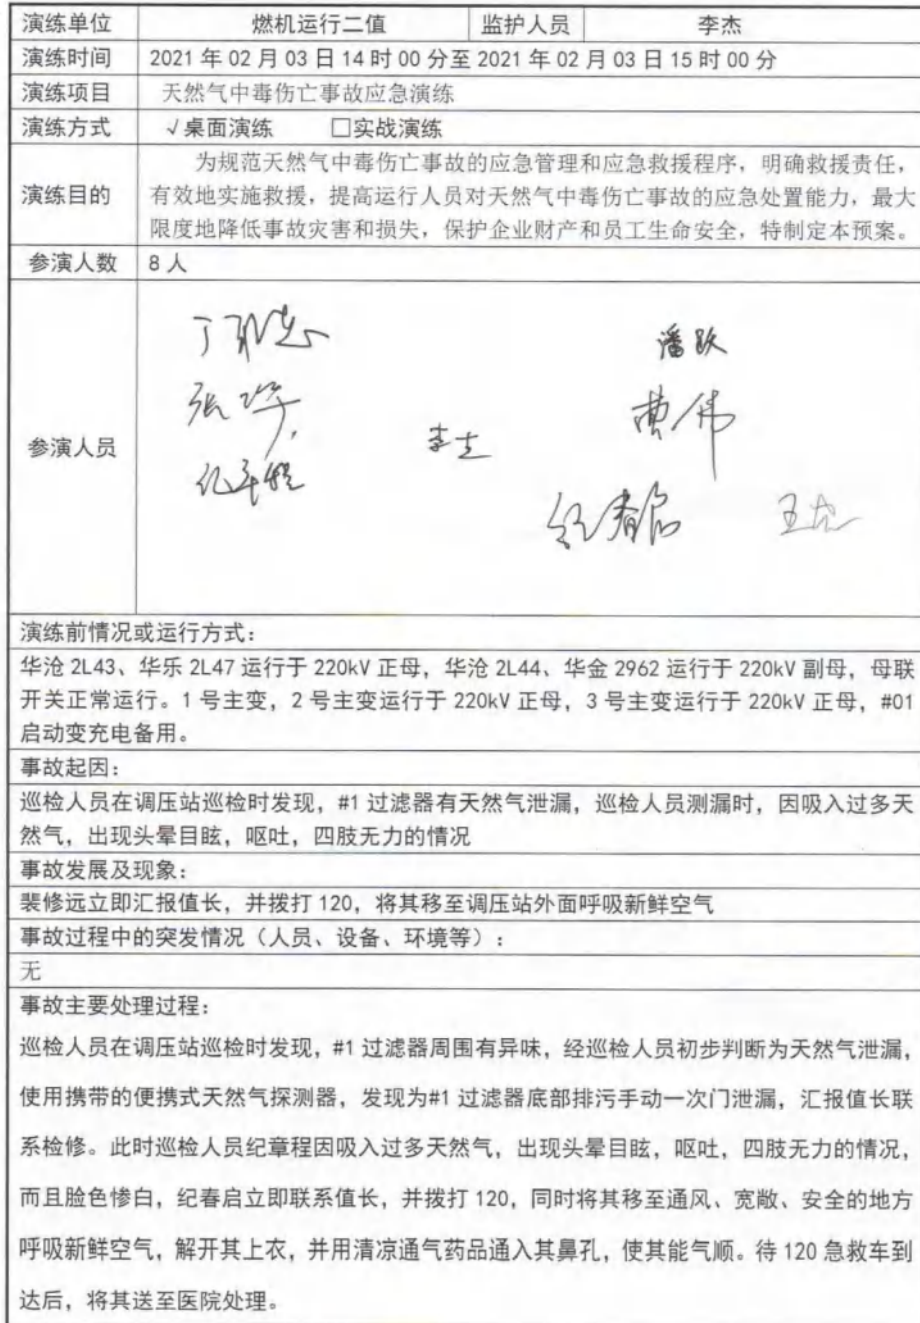 演练单位 燃机运行二值 监护人员 李杰
演练时间 2021 年 02 月 03 日 14 时 00 分至 2021 年 02 月 03 日 15 时 00 分
演练项目 天然气中毒伤亡事故应急演练
演练方式 √桌面演练 □实战演练
演练目的 为规范天然气中毒伤亡事故的应急管理和应急救援程序，明确救援责任，
有效地实施救援，提高运行人员对天然气中毒伤亡事故的应急处置能力，最大
限度地降低事故灾害和损失，保护企业财产和员工生命安全，特制定本预案。
参演人数 8 人
参演人员
潘跃
曹伟
纪章程
纪春启
演练前情况或运行方式：
华沧 2L43、华乐 2L47 运行于 220kV 正母，华沧 2L44、华金 2962 运行于 220kV 副母，母联
开关正常运行。1 号主变，2 号主变运行于 220kV 正母，3 号主变运行于 220kV 正母，#01
启动变充电备用。
事故起因：
巡检人员在调压站巡检时发现，#1 过滤器有天然气泄漏，巡检人员测漏时，因吸入过多天
然气，出现头晕目眩，呕吐，四肢无力的情况
事故发展及现象：
裴修远立即汇报值长，并拨打 120，将其移至调压站外面呼吸新鲜空气
事故过程中的突发情况（人员、设备、环境等）：
无
事故主要处理过程：
巡检人员在调压站巡检时发现，#1 过滤器周围有异味，经巡检人员初步判断为天然气泄漏，
使用携带的便携式天然气探测器，发现为#1 过滤器底部排污手动一次门泄漏，汇报值长联
系检修。此时巡检人员纪章程因吸入过多天然气，出现头晕目眩，呕吐，四肢无力的情况，
而且脸色惨白，纪春启立即联系值长，并拨打 120，同时将其移至通风、宽敞、安全的地方
呼吸新鲜空气，解开其上衣，并用清凉通气药品通入其鼻孔，使其能气顺。待 120 急救车到
达后，将其送至医院处理。